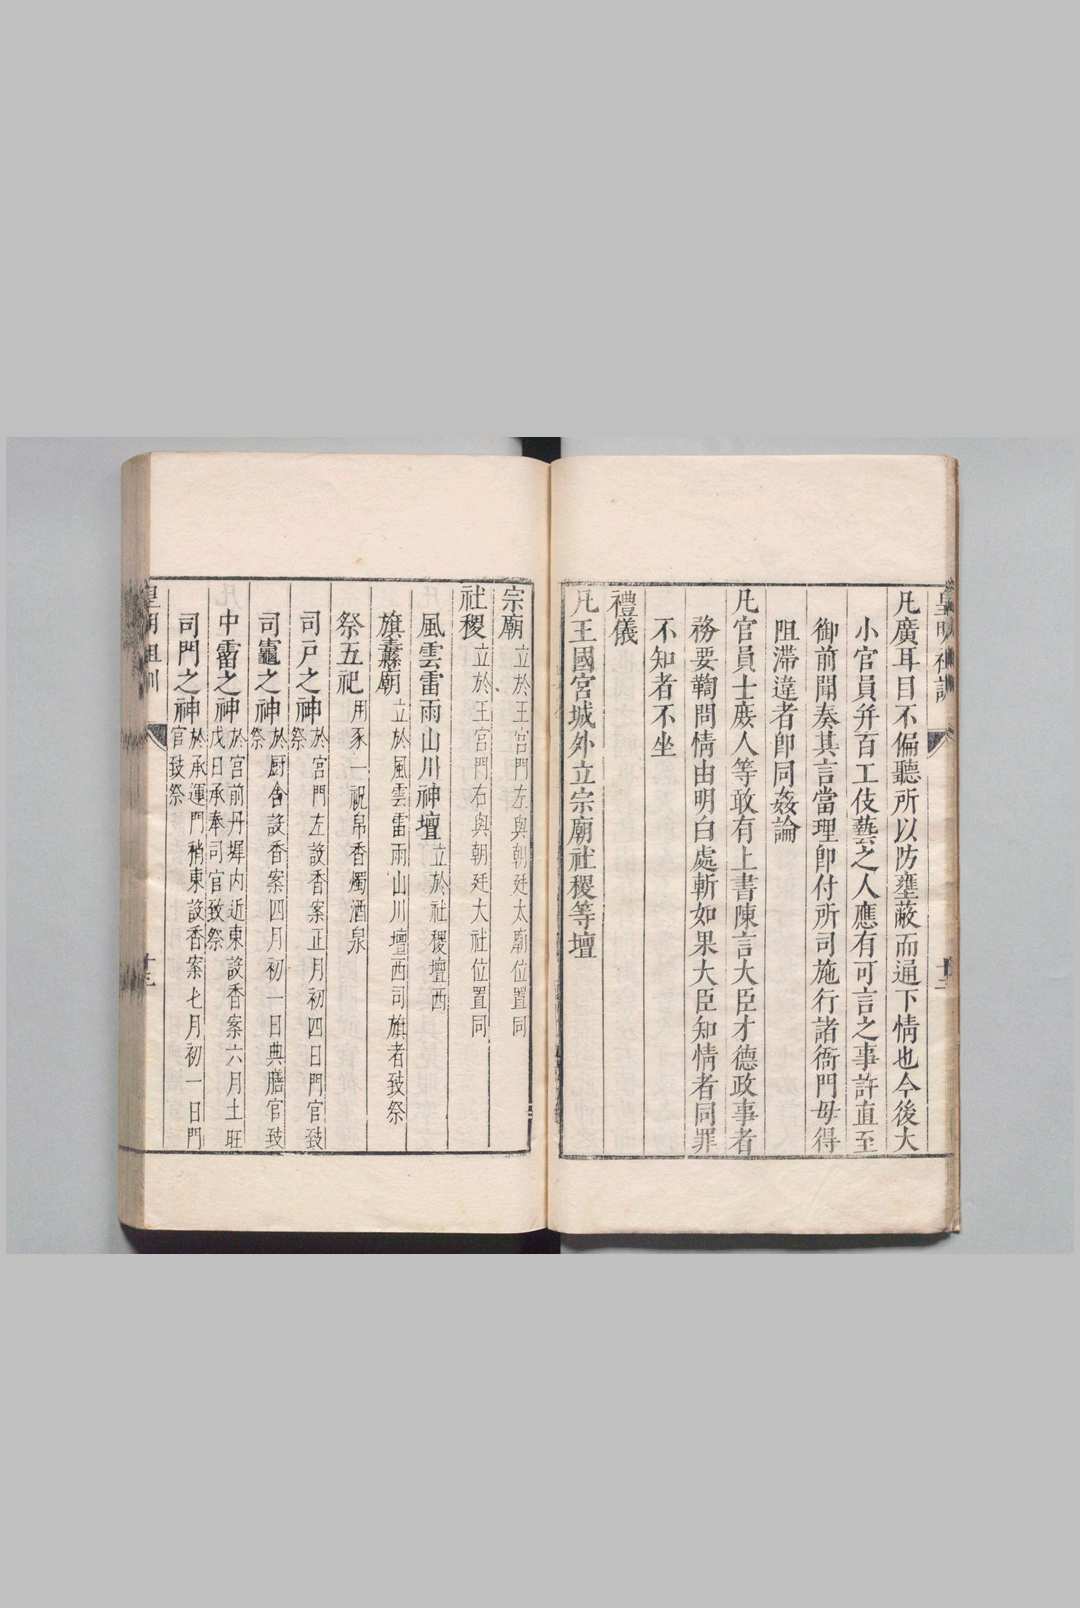 皇明祖訓
十二
凡廣耳目不偏聽所以防壅蔽而通下情也今後大
小官員并百工伎藝之人應有可言之事許直至
御前聞奏其言當理即付所司施行諸衙門毋得
阻滯違者即同姦論
凡官員士庶人等敢有上書陳言大臣才德政事者
務要鞫問情由明白處斬如果大臣知情者同罪
不知者不坐
禮儀
凡王國宮城外立宗廟社稷等壇
宗廟立於王宮門左與朝廷太廟位置同
社稷立於王宮門右與朝廷大社位置同
風雲雷雨山川神壇立於社稷壇西
旗纛廟立於風雲雷雨山川壇西司旗者致祭
祭五祀用豕一祝帛香燭酒泉
司戶之神於宮門左設香案正月初四日門官致
祭
司竈之神於厨舍設香案四月初一日典膳官致
祭
中霤之神於宮前丹墀內近東設香案六月土旺
戊日承奉司官致祭
司門之神於承運門稍東設香案七月初一日門
官致祭
皇明祖訓
十三